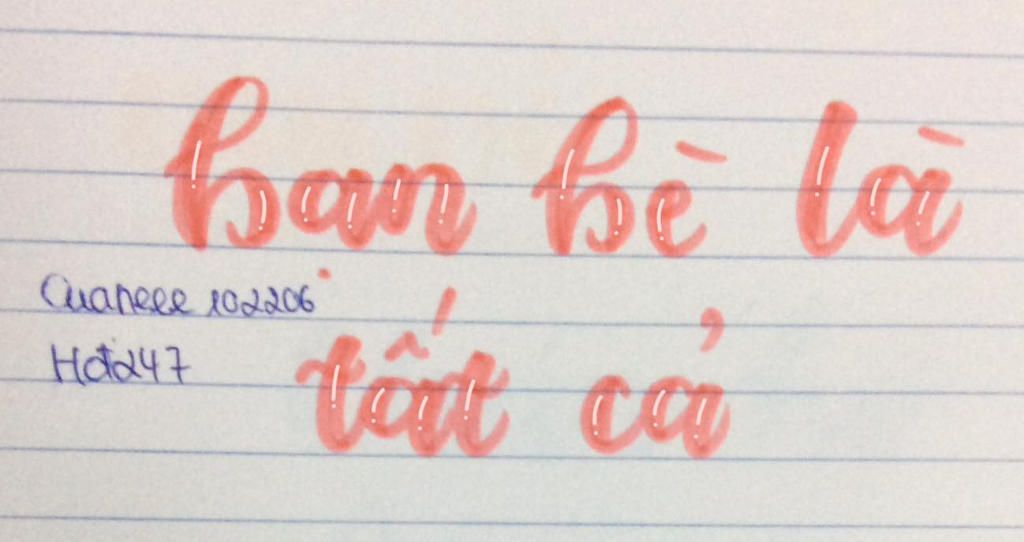 bạn bè là
Cuaneee 102206
Hđ247
tất cả